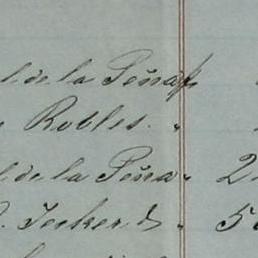 l de la Peña
Robles. "
l de la Peña " 2
Jecker & " 5